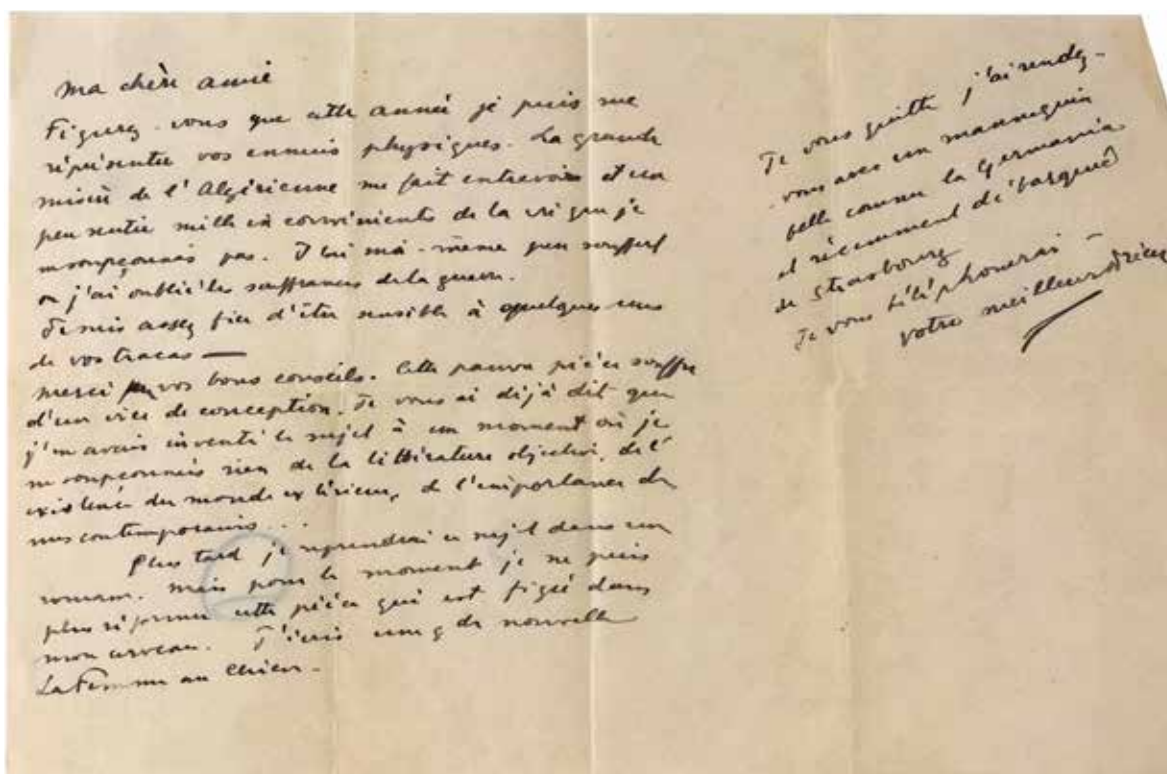 Ma chère amie
Figurez-vous que cette année je puis me
représenter vos ennuis physiques. La grande
misère de l'Algérienne me fait entrevoir et un
peu sentir mille inconvénients de la vie que je
ne soupçonnais pas. J'ai moi-même peu souffert
ou j'ai oublié les souffrances de la guerre.
Je suis assez fier d'être sensible à quelques uns
de vos tracas —
Merci pour vos bons conseils. Cette pauvre pièce souffre
d'un vice de conception. Je vous ai déjà dit que
j'en avais inventé le sujet à un moment où je
ne soupçonnais rien de la littérature objective, de l'
existence du monde extérieur, de l'importance de
mes contemporains...
Plus tard je reprendrai ce sujet dans un
roman. Mais pour le moment je ne puis
plus reprendre cette pièce qui est figée dans
mon cerveau. J'écris une gde nouvelle
La Femme au Chien.
Je vous quitte j'ai rendez-
vous avec un mannequin
belle comme la Germania
et récemment débarqué
de Strasbourg
Je vous téléphonerai —
votre meilleur Drieu